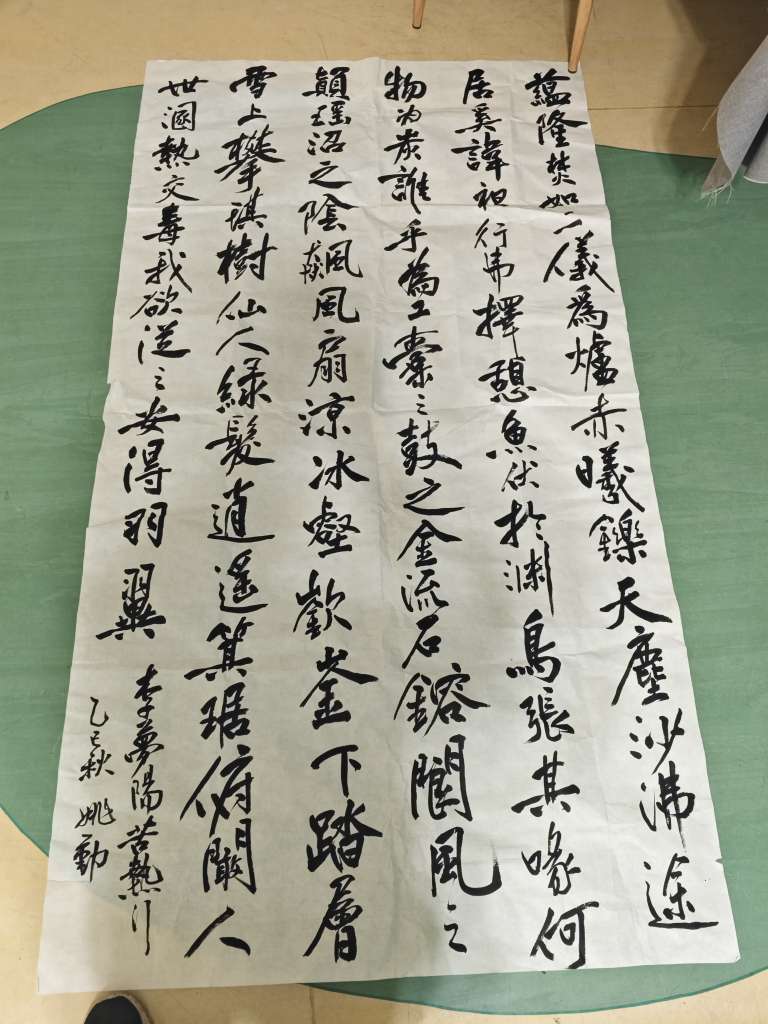 蕴隆焚如二儀為爐赤曦鑠天塵沙沸途
居奚諱袒行弗擇憩魚伏於渊鳥張其喙何
物为炭誰乎為工橐之鼓之金流石鎔閬風之
顛瑶沼之陰飇風扇涼冰壑嵚崟下踏層
雪上攀琪樹仙人緑髮逍遥箕踞俯瞰人
世溷熱交毒我欲從之安得羽翼
李夢陽苦熱行
乙巳秋 姚勤